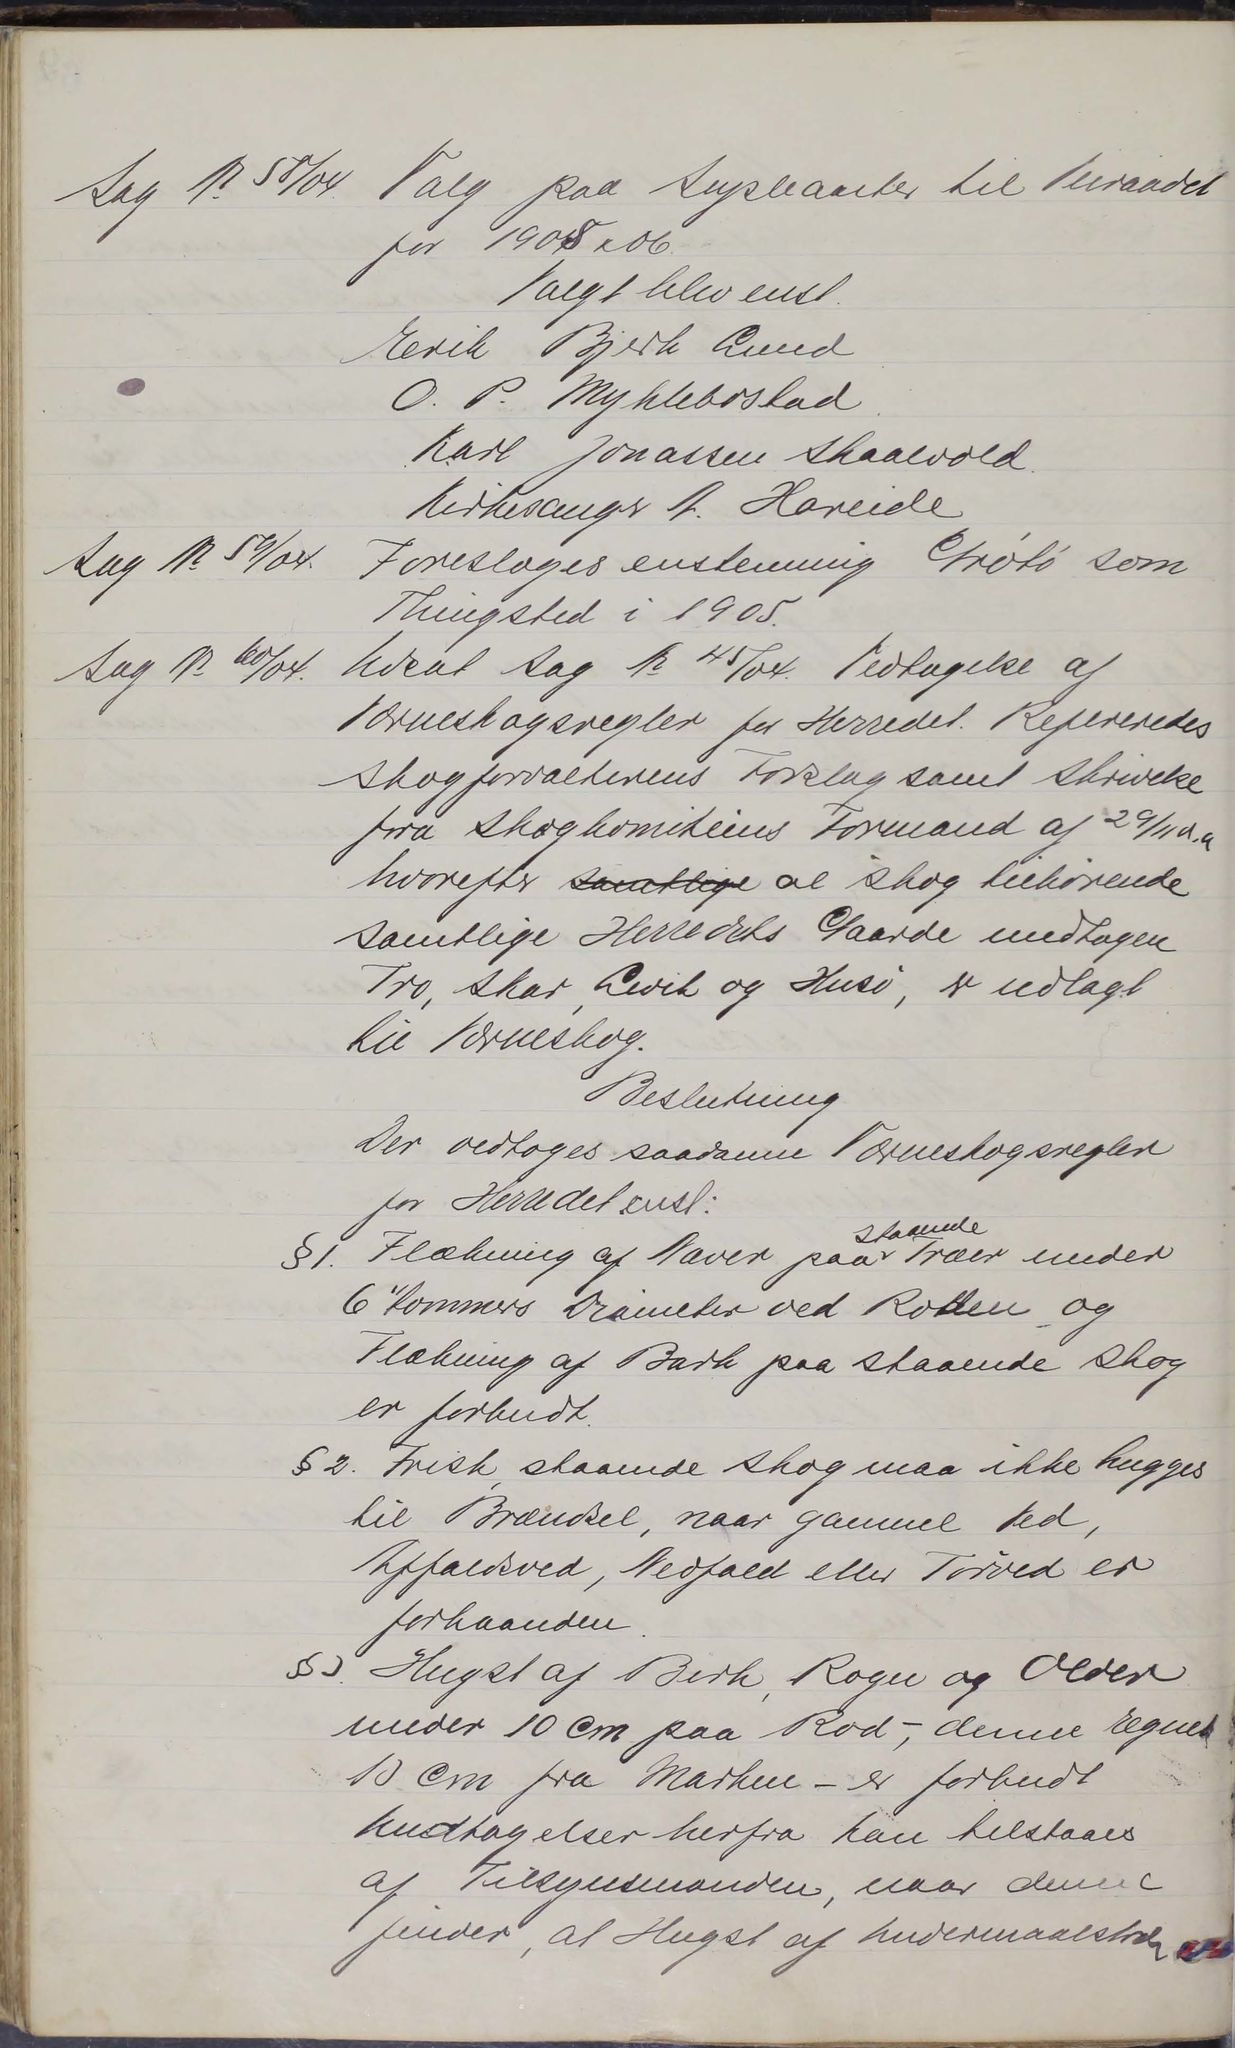 Sag № 58/04. Valg paa Supleanter til Veiraadet
for 1905 & 06.
Valgt blev enst.
Erik Bjerk Lund
O. P. Myklebostad
Karl Jonassen Skaalvold
Kirkesanger A. Hareide
Sag № 59/04. Foresloges enstemmig Grötö som
Thingsted i 1905.
Sag № 60/04. Udsat Sag № 45/04. Vedtagelse af
Værneskogsregler for Herredet. Refereredes
Skogforvalterens Forslag samt Skrivelse
fra Skogkomiteens Formand af 29/11 d.a
hvorefter samtlige al Skog tilhörende
samtlige Herredets Gaarde undtagen
Tro, Skar, Levik og Husö, er udlagt
til Værneskog.
Beslutning
Der vedtoges saadanne Værneskogsregler
for Herredet enst:
§ 1. Flækning af Næver paa staaende Træer under
6" Tommers Diameter ved Roden og
Flækning af Bark paa staaende Skog
er forbudt.
§ 2. Frisk, staaende Skog maa ikke hugges
til Brændsel, naar gammel Ved,
Affaldsved, Nedfald eller Törved er
forhaanden.
§ 3. Hugst af Birk, Rogn og Older
under 10 cm paa Rod -, denne regnet
10 cm fra Marken - er forbudt
Undtagelser herfra kan tilstaaes
af Tilsynsmanden, naar denne
finder, at Hugst af Undermaalstræ